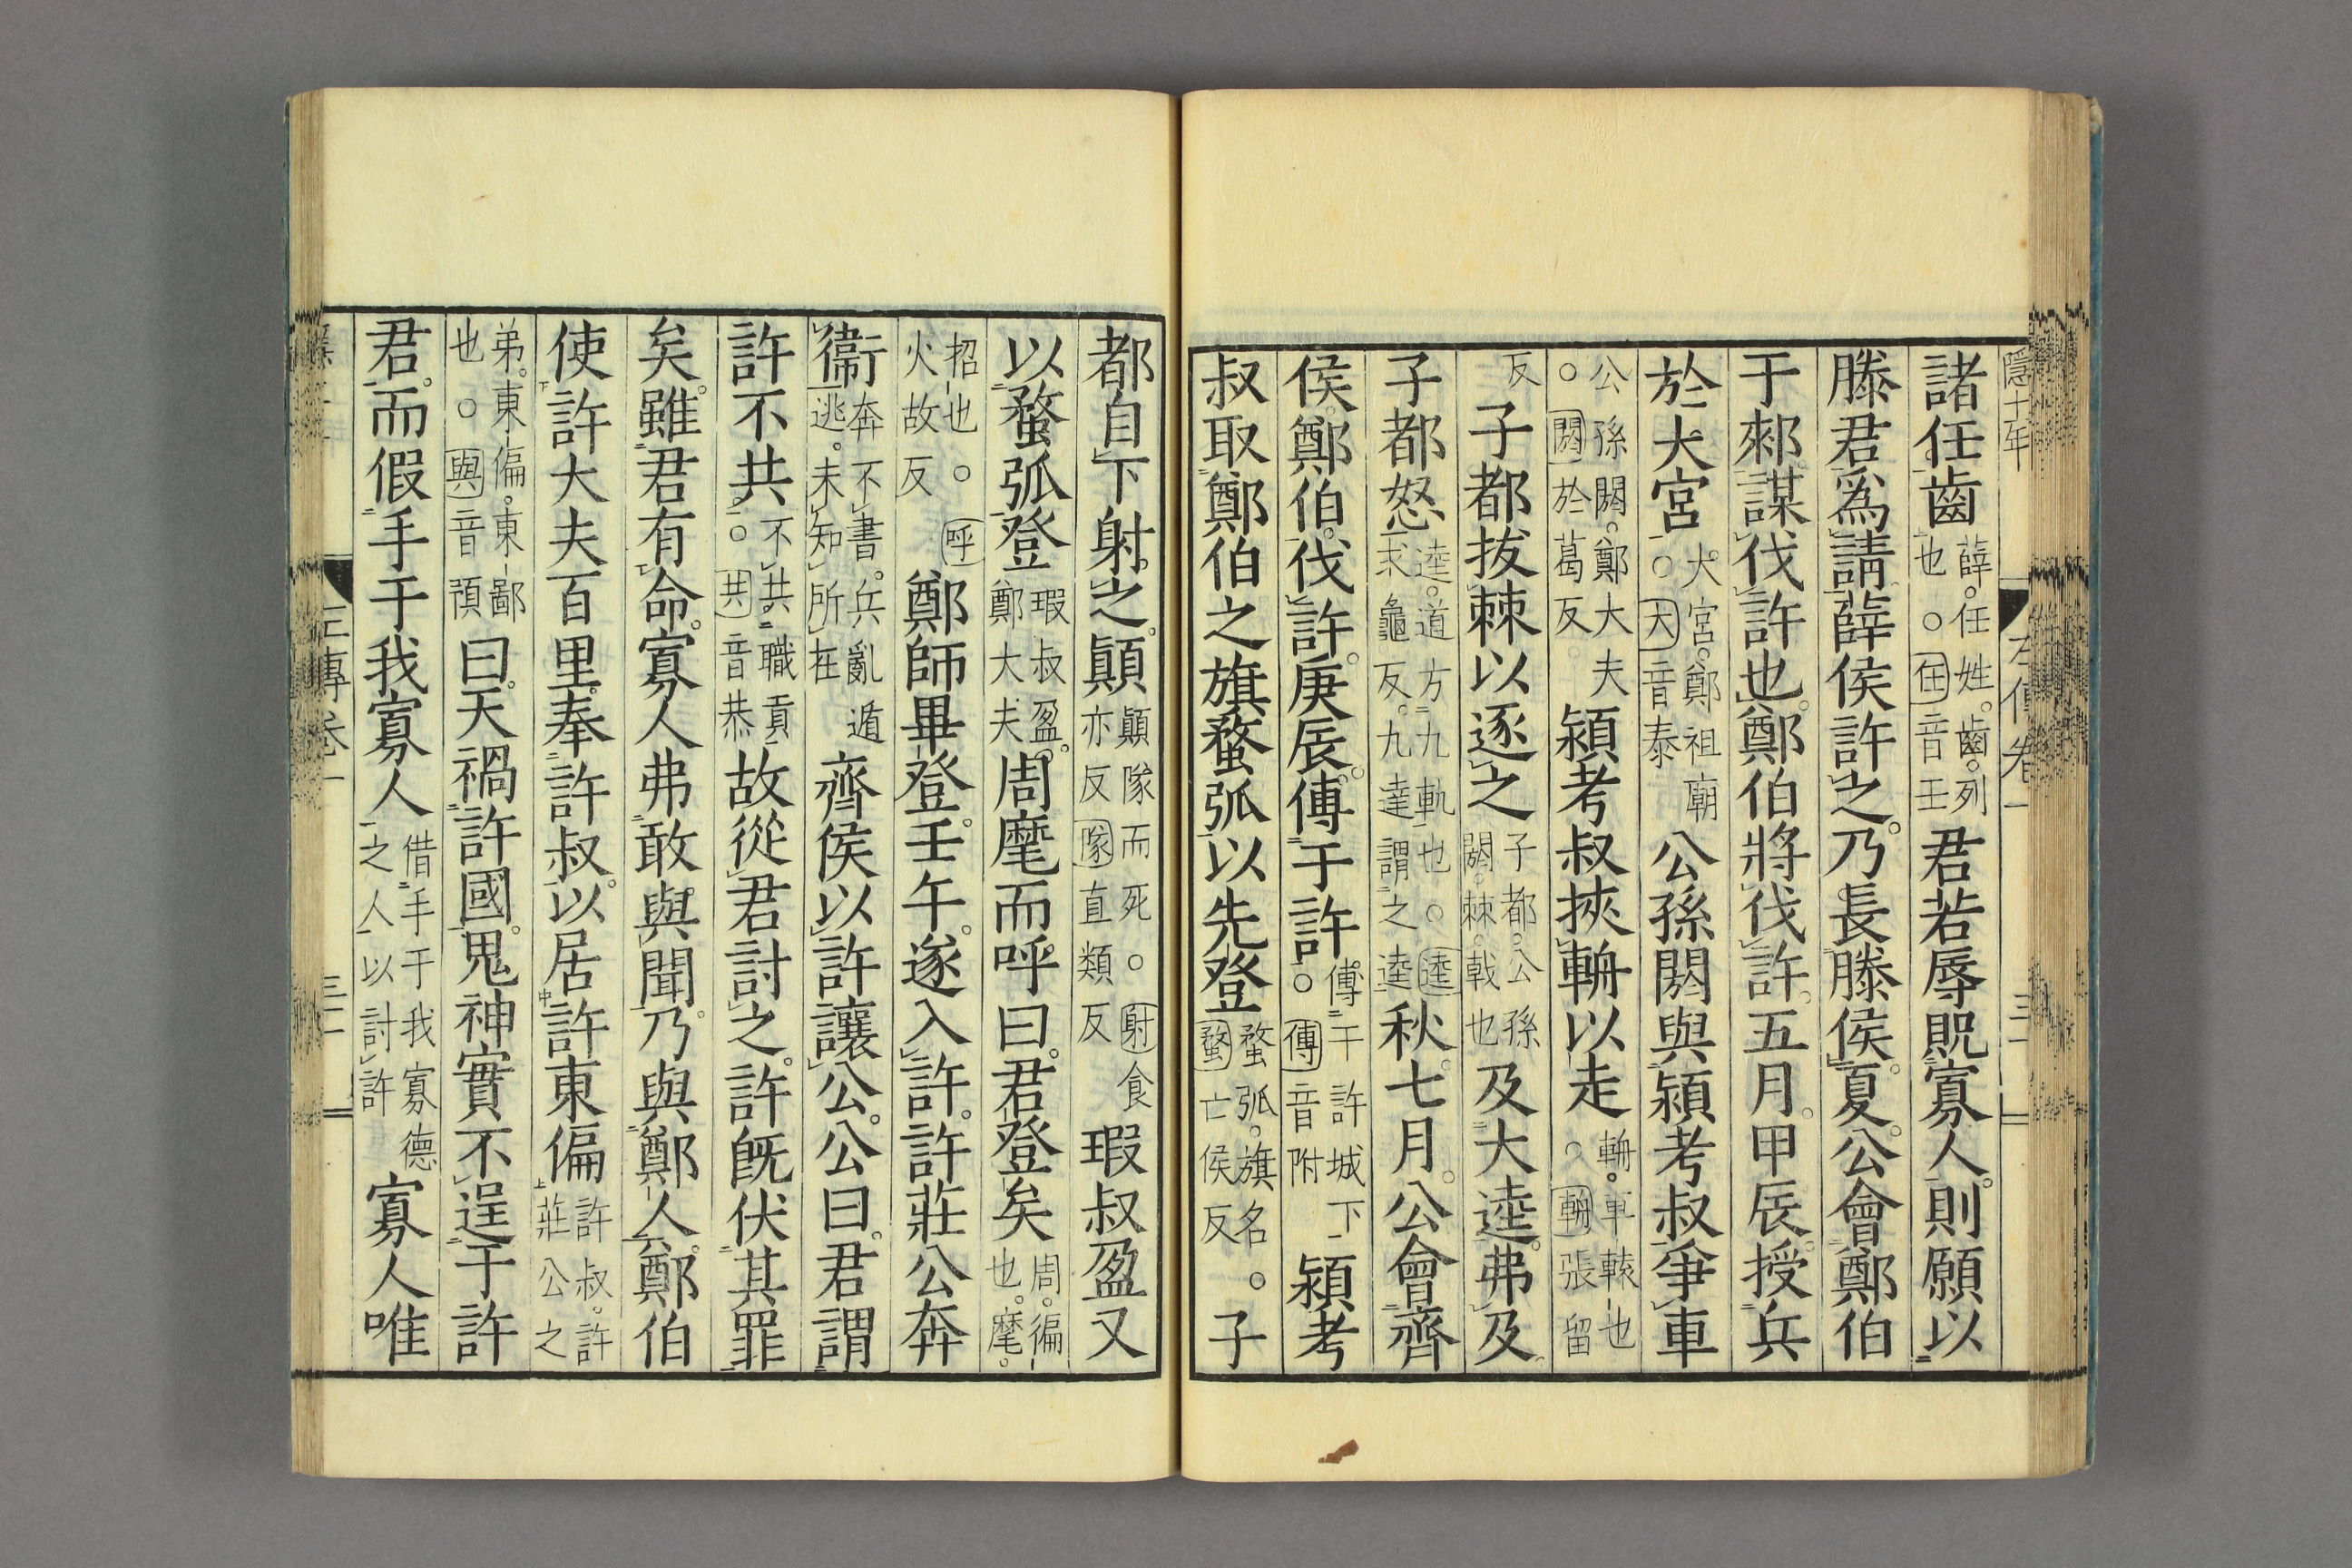 諸任齒薛任姓齒列也○任音壬君若辱貺寡人則願以
滕君爲請薛侯許之乃長滕侯夏公會鄭伯
于郲謀伐許也鄭伯將伐許五月甲辰授兵
於大宮大宮鄭祖廟○大音泰公孫閼與潁考叔爭車
公孫閼鄭大夫○閼於葛反潁考叔挾輈以走輈車轅也○輈張留
反子都拔棘以逐之子都公孫閼棘戟也及大逵弗及
子都怒逵道方九軌也○逵求龜反九達謂之逵秋七月公會齊
侯鄭伯伐許庚辰傅于許傅于許城下○傅音附潁考
叔取鄭伯之旗蝥弧以先登蝥弧旗名○蝥亡侯反子
都自下射之顛顛隊而死○射食亦反隊直類反瑕叔盈又
以蝥弧登瑕叔盈鄭大夫周麾而呼曰君登矣周徧也麾
招也○呼火故反鄭師畢登壬午遂入許許莊公奔
衞奔不書兵亂遁逃未知所在齊侯以許讓公公曰君謂
許不共不共職貢○共音恭故從君討之許旣伏其罪
矣雖君有命寡人弗敢與聞乃與鄭人鄭伯
使許大夫百里奉許叔以居許東偏許叔許莊公之
弟東偏東鄙也○與音預曰天禍許國鬼神實不逞于許
君而假手于我寡人借手于我寡德之人以討許寡人唯